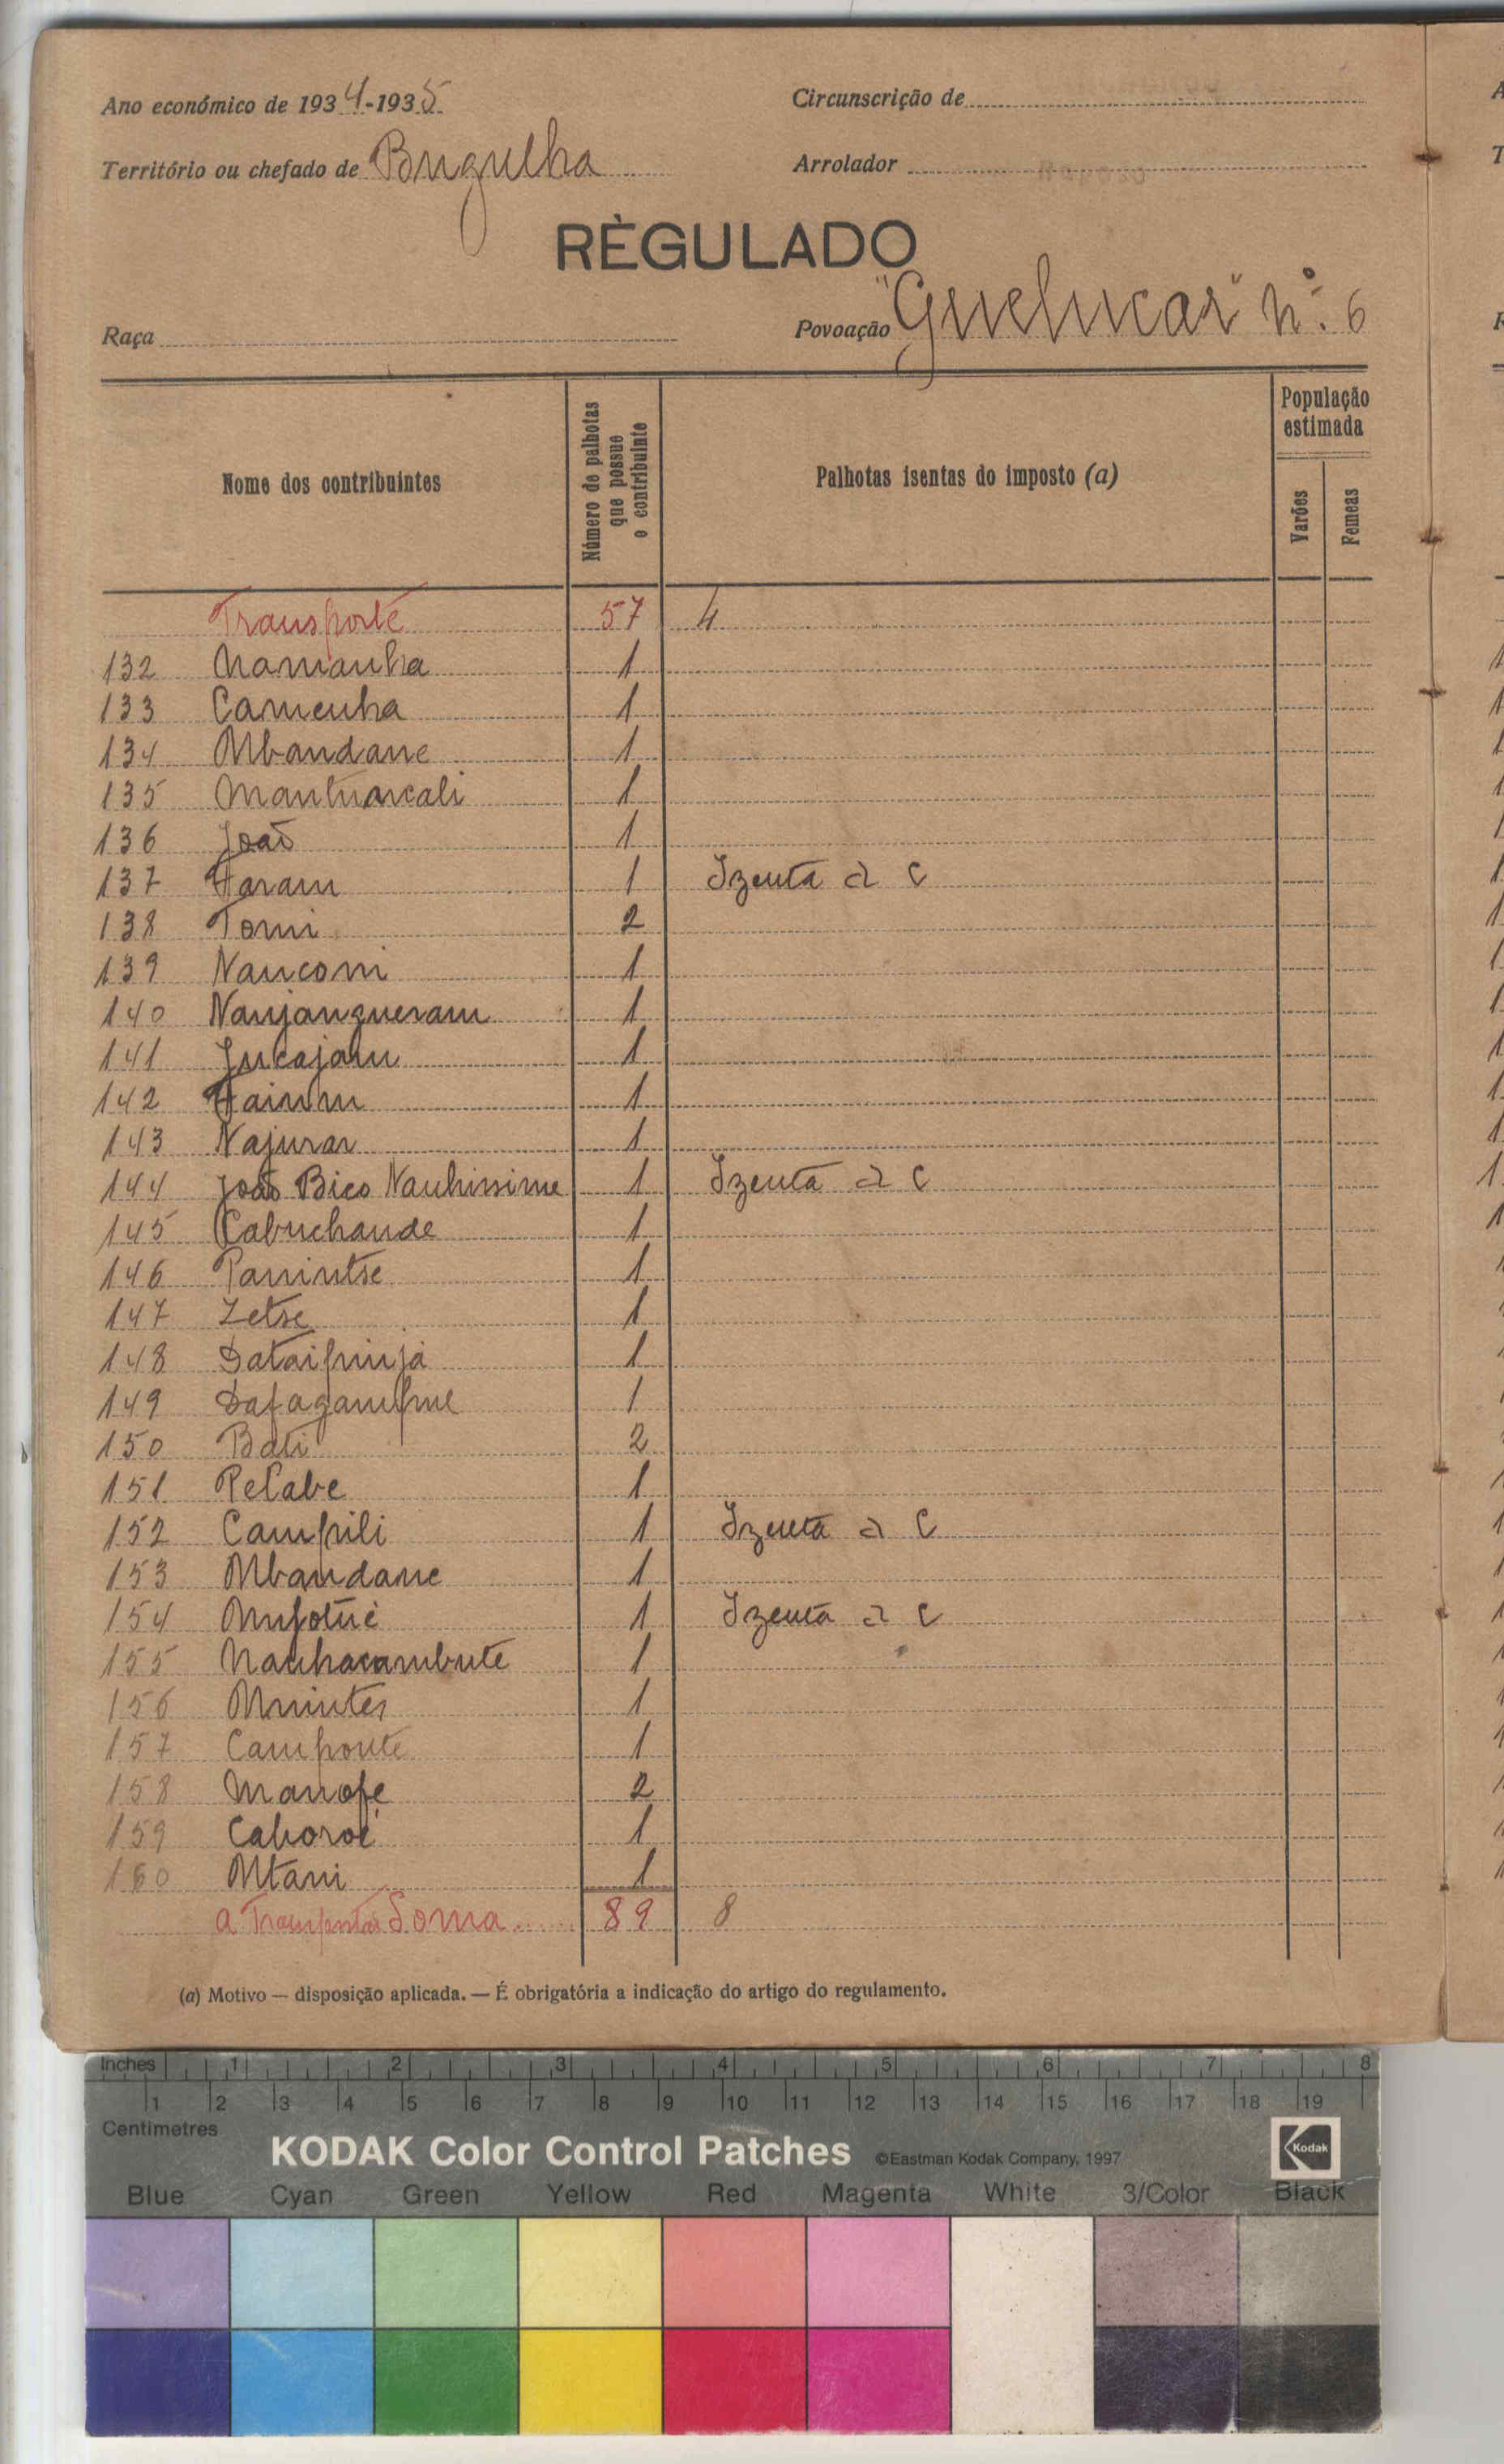 Ano económico de 1934-1935
Circunscrição de
Território ou chefado de Bugulha
Arrolador
RÈGULADO
Raça
Povoação "Guelucar" nº. 6
Nome dos contribuintes
Número de palhotas que possue o contribuinte
Palhotas isentas do imposto (a)
População estimada
Varões
Femeas
Transporte 57 4
132 Namanha 1
133 Camenha 1
134 Mbandane 1
135 Mantuarcali 1
136 João 1
137 Faram 1 Izenta à C
138 Tomi 2
139 Nanconi 1
140 Nanjangueram 1
141 Jucajam 1
142 1
143 Najurar 1
144 João Bico 1 Izenta à C
145 Cabuchande 1
146 Panintse 1
147 Zetse 1
148 Dataipinja 1
149 1
150 Bati 2
151 Pecabe 1
152 Campili 1 Izenta à C
153 Mbandane 1
154 1 Izenta à C
155 Nanhacambute 1
156 Mnintes 1
157 Camponte 1
158 Manofe 2
159 Caboroé 1
160 Ntani 1
a Transportar Soma 89 8
(a) Motivo — disposição aplicada. — É obrigatória a indicação do artigo do regulamento.
Inches 1 2 3 4 5 6 7 8
1 2 3 4 5 6 7 8 9 10 11 12 13 14 15 16 17 18 19
Centimetres
KODAK Color Control Patches ©Eastman Kodak Company, 1997 Kodak
Blue Cyan Green Yellow Red Magenta White 3/Color Black